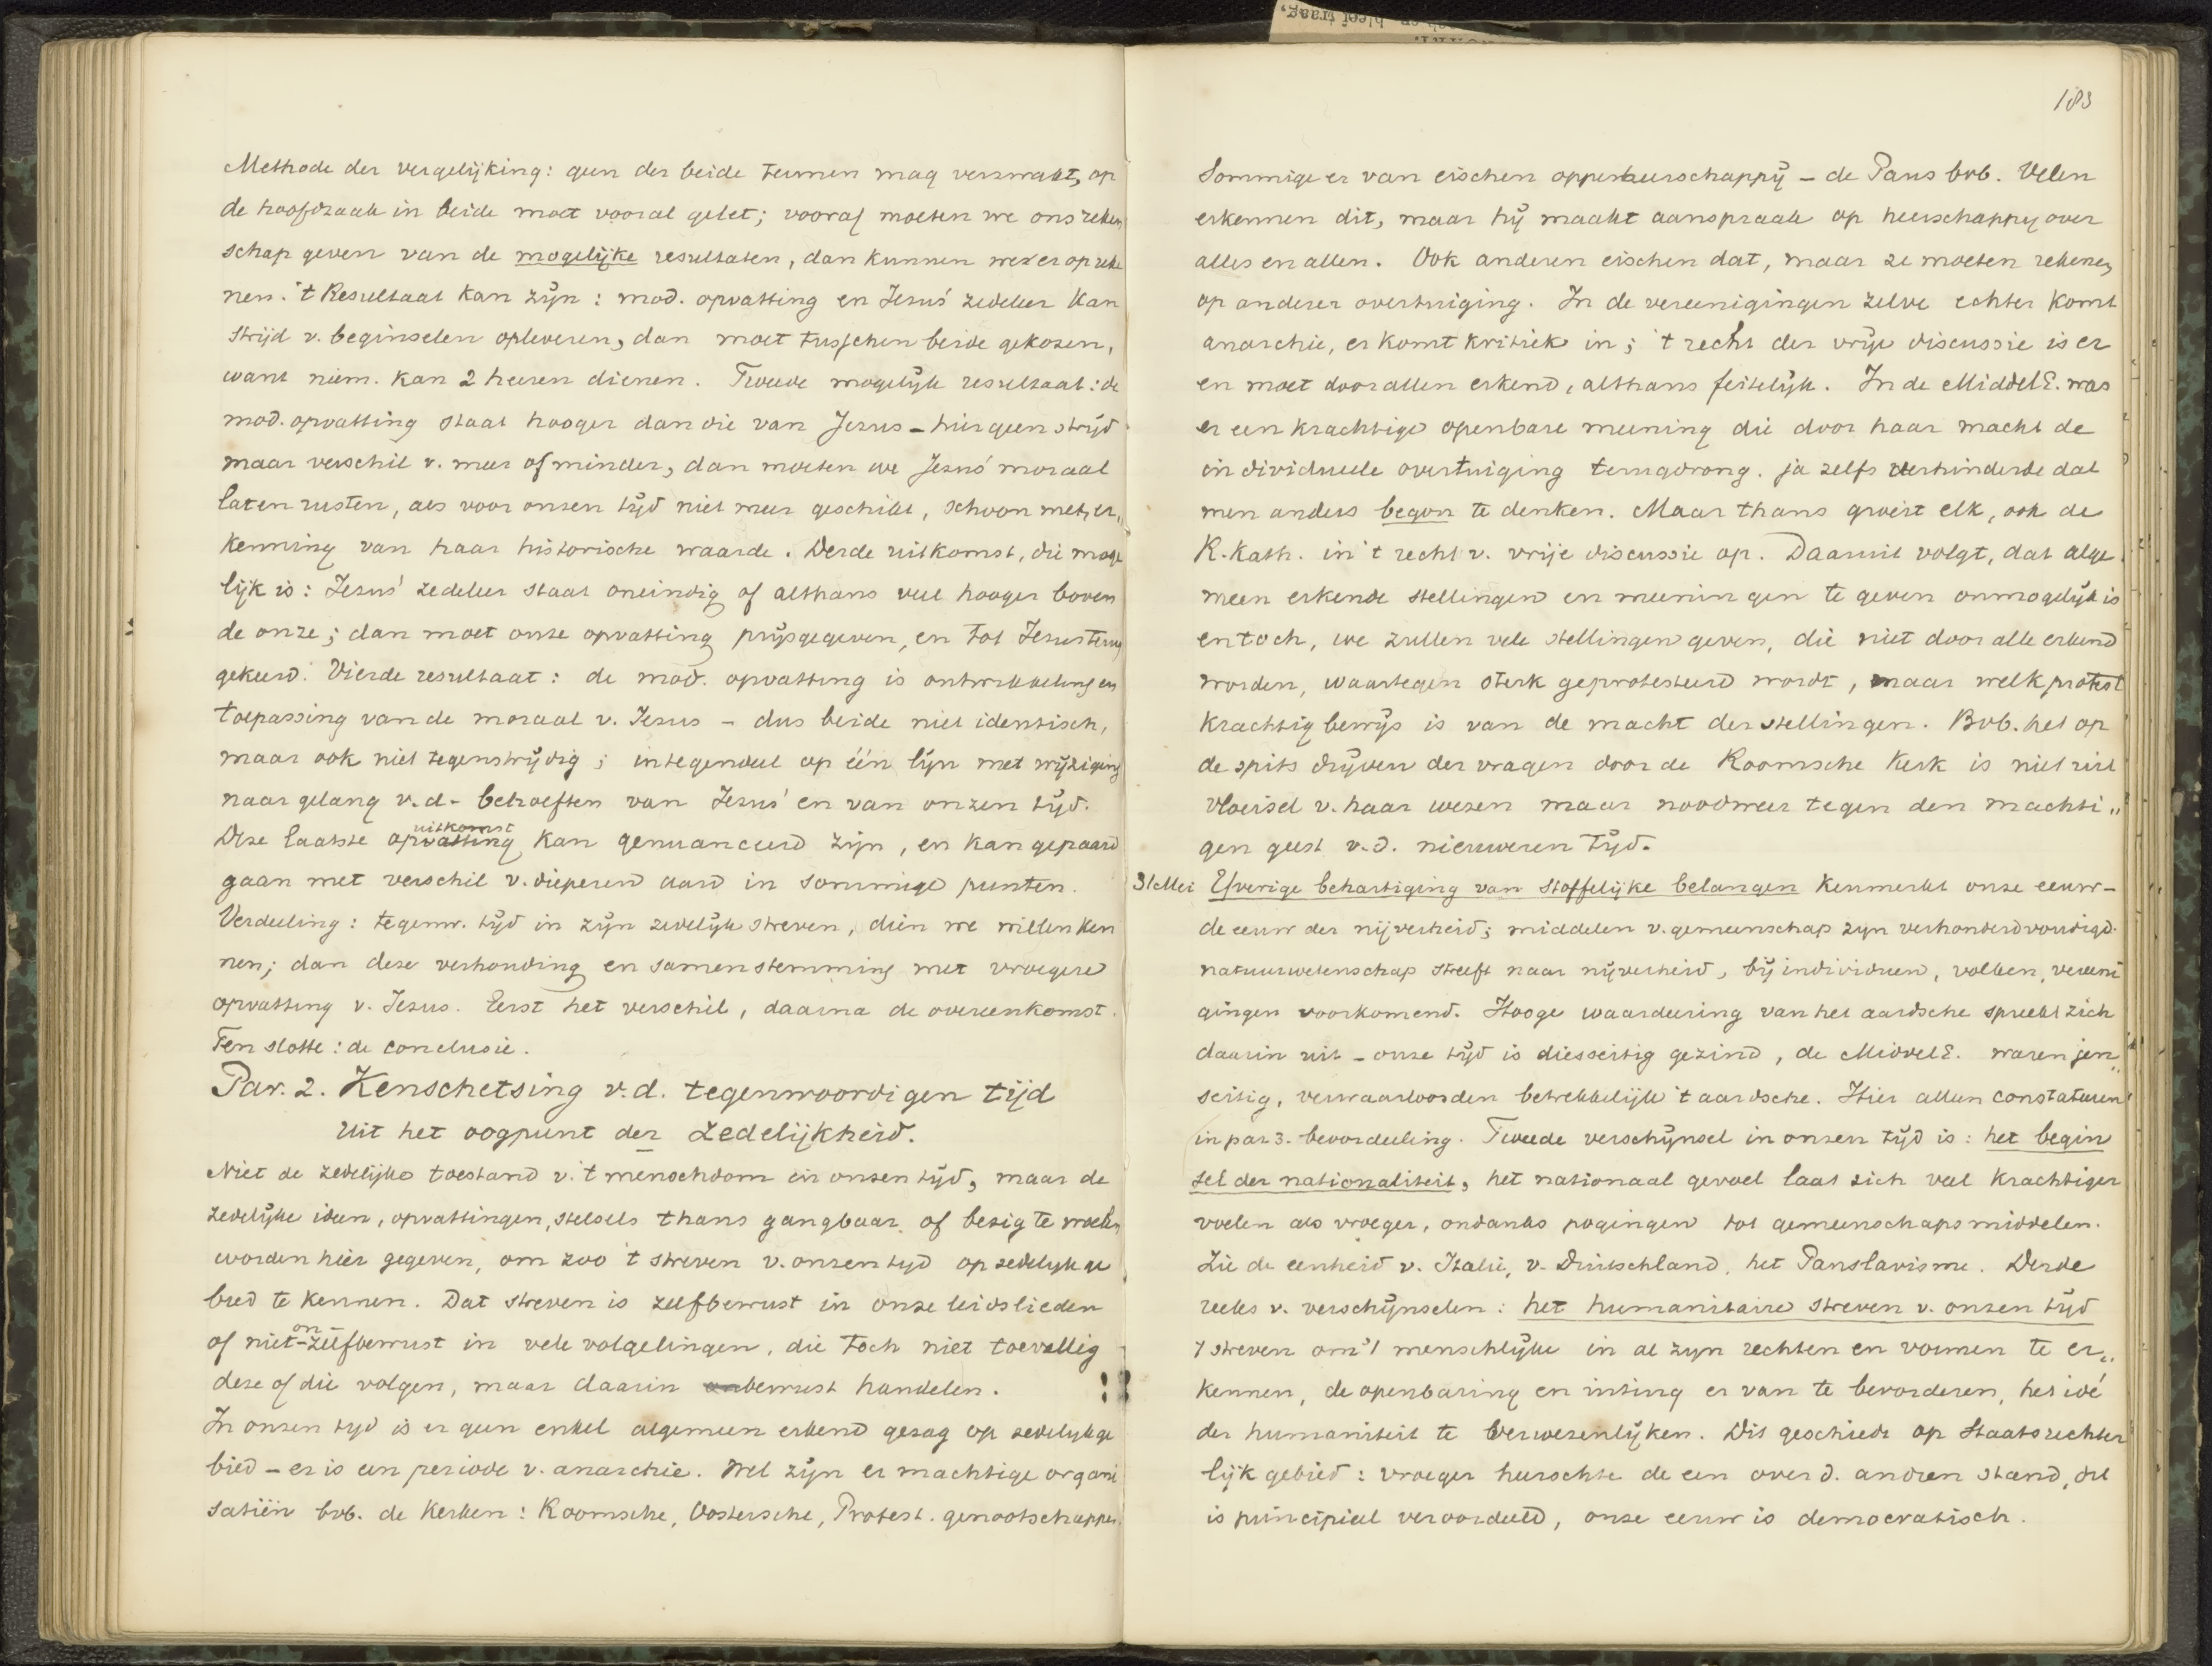 Methode der vergelijking: geen der beide termen mag verzwakt, op
de hoofdzaak in beide moet vooral gelet; vooraf moeten we ons reken
schap geven van de mogelijke resultaten, dan kunnen we er op reke
nen. 't Resultaat kan zijn: mod. opvatting en Jezus' zedeleer kan
strijd v. beginselen opleveren, dan moet tusschen beide gekozen,
want niem. kan 2 heeren dienen. Tweede mogelijk resultaat: de
mod. opvatting staat hooger dan die van Jezus – hier geen strijd
maar verschil v. meer of minder, dan moeten we Jezus' moraal
laten rusten, als voor onzen tijd niet meer geschikt, schoon met er„
kenning van haar historische waarde. Derde uitkomst, die moge
lijk is: Jezus' zedeleer staat oneindig of althans veel hooger boven
de onze; dan moet onze opvatting prijsgegeven, en tot Jezus terug
gekeerd. Vierde resultaat: de mod. opvatting is ontwikkeling en
toepassing van de moraal v. Jezus – dus beide niet identisch,
maar ook niet tegenstrijdig; integendeel op één lijn met wijziging
naar gelang v.d. behoeften van Jezus' en van onzen tijd.
uitkomst
Deze laatste opvatting kan genuanceerd zijn, en kan gepaard
gaan met verschil v. dieperen aard in sommige punten.
Verdeeling: tegenw. tijd in zijn zedelijk streven, dien we willen ken
nen; dan deze verhouding en samenstemming met vroegere
opvatting v. Jezus. Eerst het verschil, daarna de overeenkomst.
Ten slotte: de conclusie.
Par. 2. Kenschetsing v.d. tegenwoordigen tijd
uit het oogpunt der zedelijkheid.
Niet de zedelijke toestand v. 't menschdom in onzen tijd, maar de
zedelijke ideen, opvattingen, stelsels thans gangbaar of bezig te
worden hier gegeven, om zoo 't streven v. onzen tijd op zedelijk ge
bied te kennen. Dat streven is zelfbewust in onze leidslieden
on-
of niet-zelfbewust in vele volgelingen, die toch niet toevallig
deze of die volgen, maar daarin onbewust handelen.
In onzen tijd is er geen enkel algemeen erkend gezag op zedelijk ge
bied – er is een periode v. anarchie. Wel zijn er machtige organi
satiën bvb. de Kerken: Roomsche, Oostersche, Protest. genootschappen.
183
Sommige er van eischen opperheerschappij – de Paus bvb. Velen
erkennen dit, maar hij maakt aanspraak op heerschappij over
alles en allen. Ook anderen eischen dat, maar ze moeten rekenen
op anderer overtuiging. In de vereenigingen zelve echter komt
anarchie, er komt kritiek in; 't recht der vrije discussie is er
en moet door allen erkend, althans feitelijk. In de MiddelE. was
er een krachtige openbare meening die door haar macht de
individueele overtuiging terugdrong. ja zelfs verhinderde dat
men anders begon te denken. Maar thans groeit elk, ook de
R. Kath. in 't recht v. vrije discussie op. Daaruit volgt, dat alge
meen erkende stellingen en meeningen te geven onmogelijk is
en toch, we zullen vele stellingen geven, die niet door alle erkend
worden, waartegen sterk geprotesteerd wordt, maar welk protest
krachtig bewijs is van de macht der stellingen. Bvb. het op
de spits drijven der vragen door de Roomsche Kerk is niet uit
vloeisel v. haar wezen maar noodweer tegen den machti„
gen geest v.d. nieuweren tijd.
31 Mei IJverige behartiging van stoffelijke belangen kenmerkt onze eeuw –
de eeuw der nijverheid; middelen v. gemeenschap zijn verhonderdvoudigd.
natuurwetenschap streeft naar nijverheid, bij individuen, volken, vereeni
gingen voorkomend. Hooge waardeering van het aardsche spreekt zich
daarin uit – onze tijd is diesseitig gezind, de MiddelE. waren jen„
seitig, verwaarloosden betrekkelijk 't aardsche. Hier alleen constateeren
in par 3. beoordeeling. Tweede verschijnsel in onzen tijd is: het begin
sel der nationaliteit, het nationaal gevoel laat zich veel krachtiger
voelen als vroeger, ondanks pogingen tot gemeenschapsmiddelen.
Zie de eenheid v. Italie, v. Duitschland, het Panslavisme. Derde
reeks v. verschijnselen: het humanitaire streven v. onzen tijd
't streven om 't menschlijke in al zijn rechten en vormen te er„
kennen, de openbaring en uiting er van te bevorderen, het idé
der humaniteit te verwezenlijken. Dit geschiedt op Staatsrechter
lijk gebied: vroeger heerschte de een over d. andren stand, dit
is principieel veroordeeld, onze eeuw is democratisch.